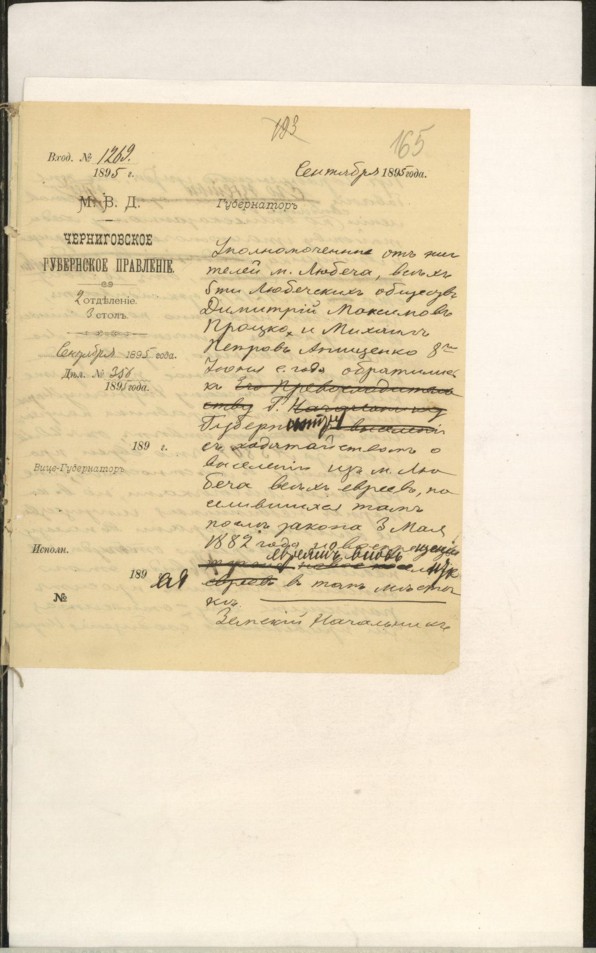 193
165
Вход. № 1269.
1895 г.
Сентября 1895 года.
М. В. Д.
Губернаторъ
ЧЕРНИГОВСКОЕ
ГУБЕРНСКОЕ ПРАВЛЕНІЕ.
2 отдѣленіе.
3 столъ.
Сентября 1895 года.
Дѣл. № 356
1895 года.
189 г.
Вице-Губернаторъ
Исполн.
189
№
Уполномоченные отъ жи
телей м. Любеча, всѣхъ
5ти Любечскихъ обществъ
Димитрій Максимовъ
Процко, и Михаилъ
Петровъ Анищенко 8го
Іюня с. года обратились
къ Его Превосходитель
ству Г. Начальнику
Губерн
съ ходатайствомъ о
выселеніи изъ м. Лю
беча всѣхъ евреевъ, по
селившихся тамъ
послѣ закона 3 Мая
1882 года и о воспрещеніи
евреямъ вновь
евреевъ въ томъ мѣстеч
кѣ
Земскій Начальникъ